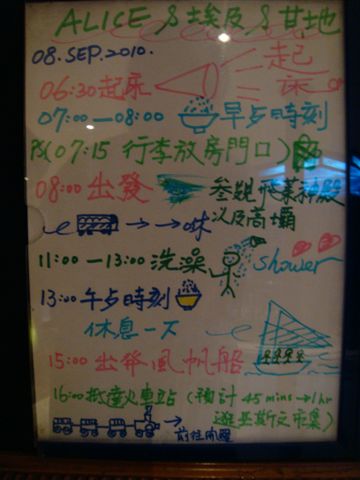 ALICE & 埃及 & 甘地
08.SEP.2010.
06:30起床 起床
07:00—08:00 早点時刻
PS(07:15 行李放房門口)
08:00 出發 参觀 神殿
以及高壩
→→咻
11:00—13:00 洗澡 shower
13:00 午点時刻
休息一下
15:00 出發風帆船
16:00 抵達火車站 (預計 45 mins→1hr
逛亞斯文市集)
→ 前往